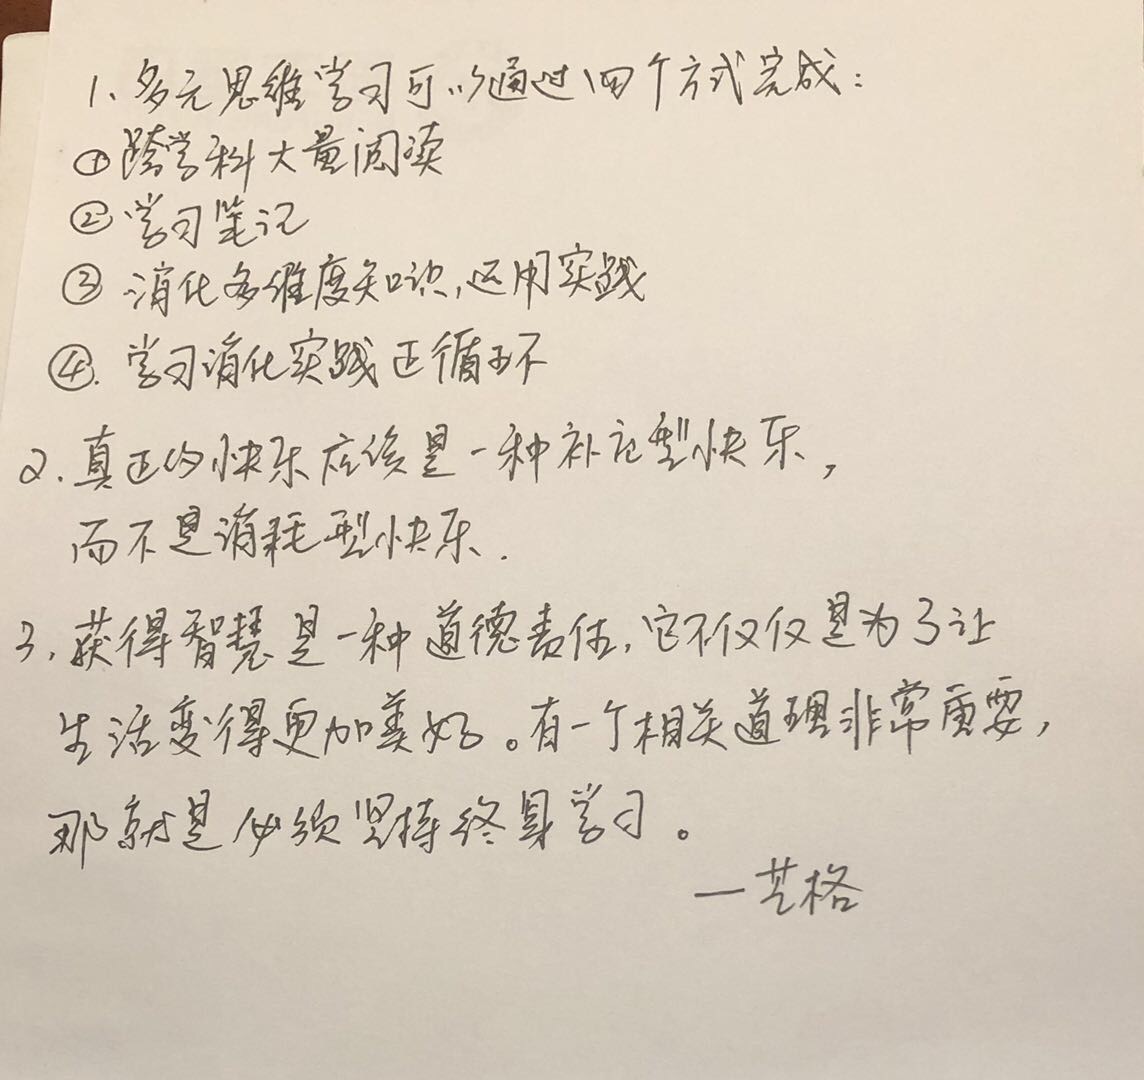 1、多元思维学习可以通过四个方式完成：
①跨学科大量阅读
②学习笔记
③消化多维度知识,运用实践
④.学习消化实践正循环
2.真正的快乐应该是一种补充型快乐，
而不是消耗型快乐.
3,获得智慧是一种道德责任,它不仅仅是为了让
生活变得更加美好。有一个相关道理非常重要，
那就是必须坚持终身学习。
一芒格